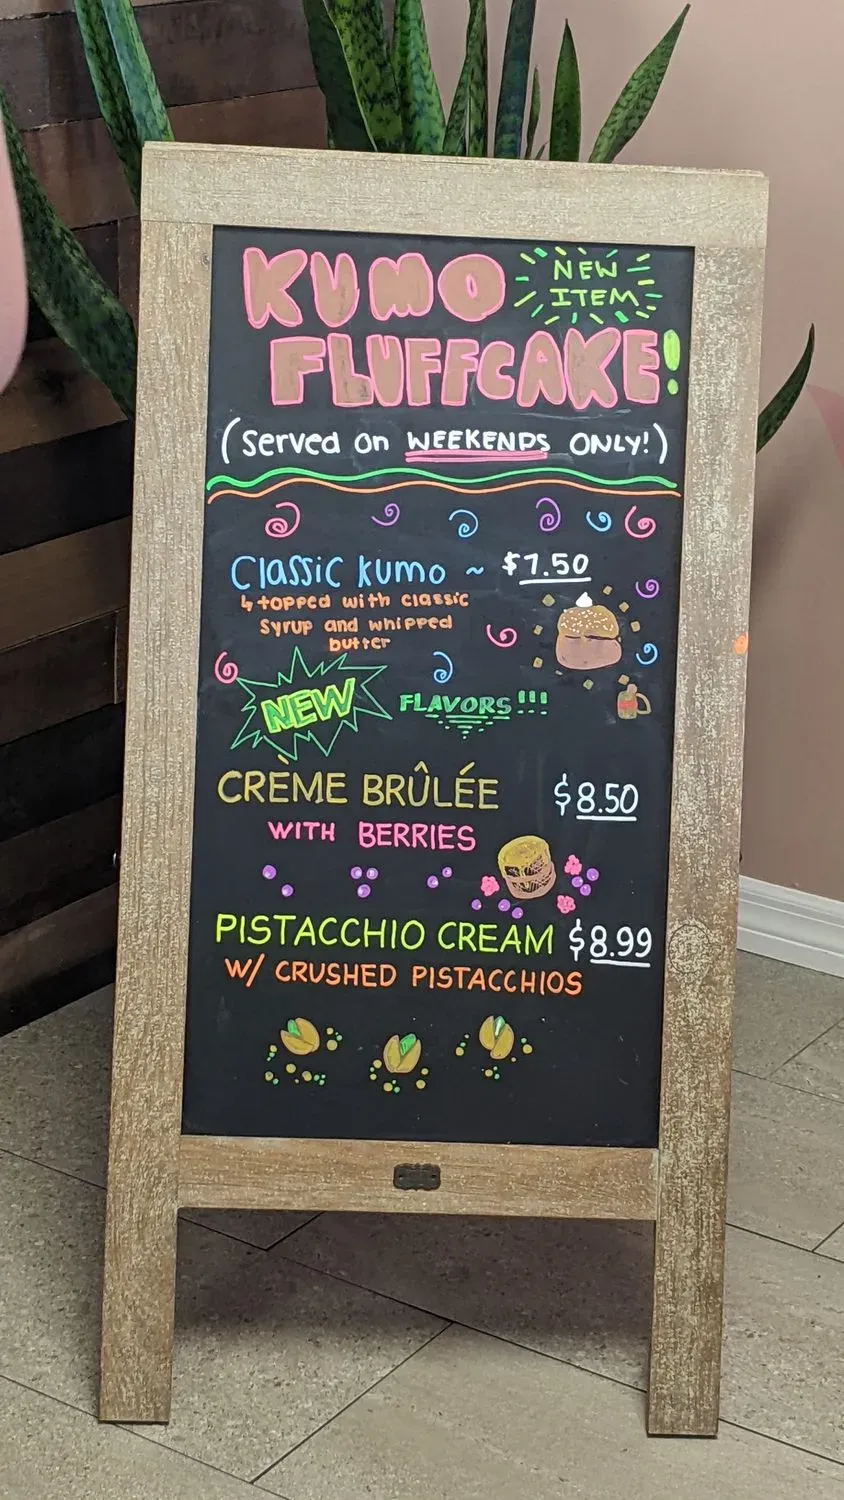 KUMO
NEW
ITEM
FLUFFCAKE!
(Served on WEEKENDS ONLY!)
Classic Kumo ~ $7.50
↳ topped with classic
syrup and whipped
butter
NEW FLAVORS!!!
CRÈME BRÛLÉE $8.50
WITH BERRIES
PISTACCHIO CREAM $8.99
W/ CRUSHED PISTACCHIOS